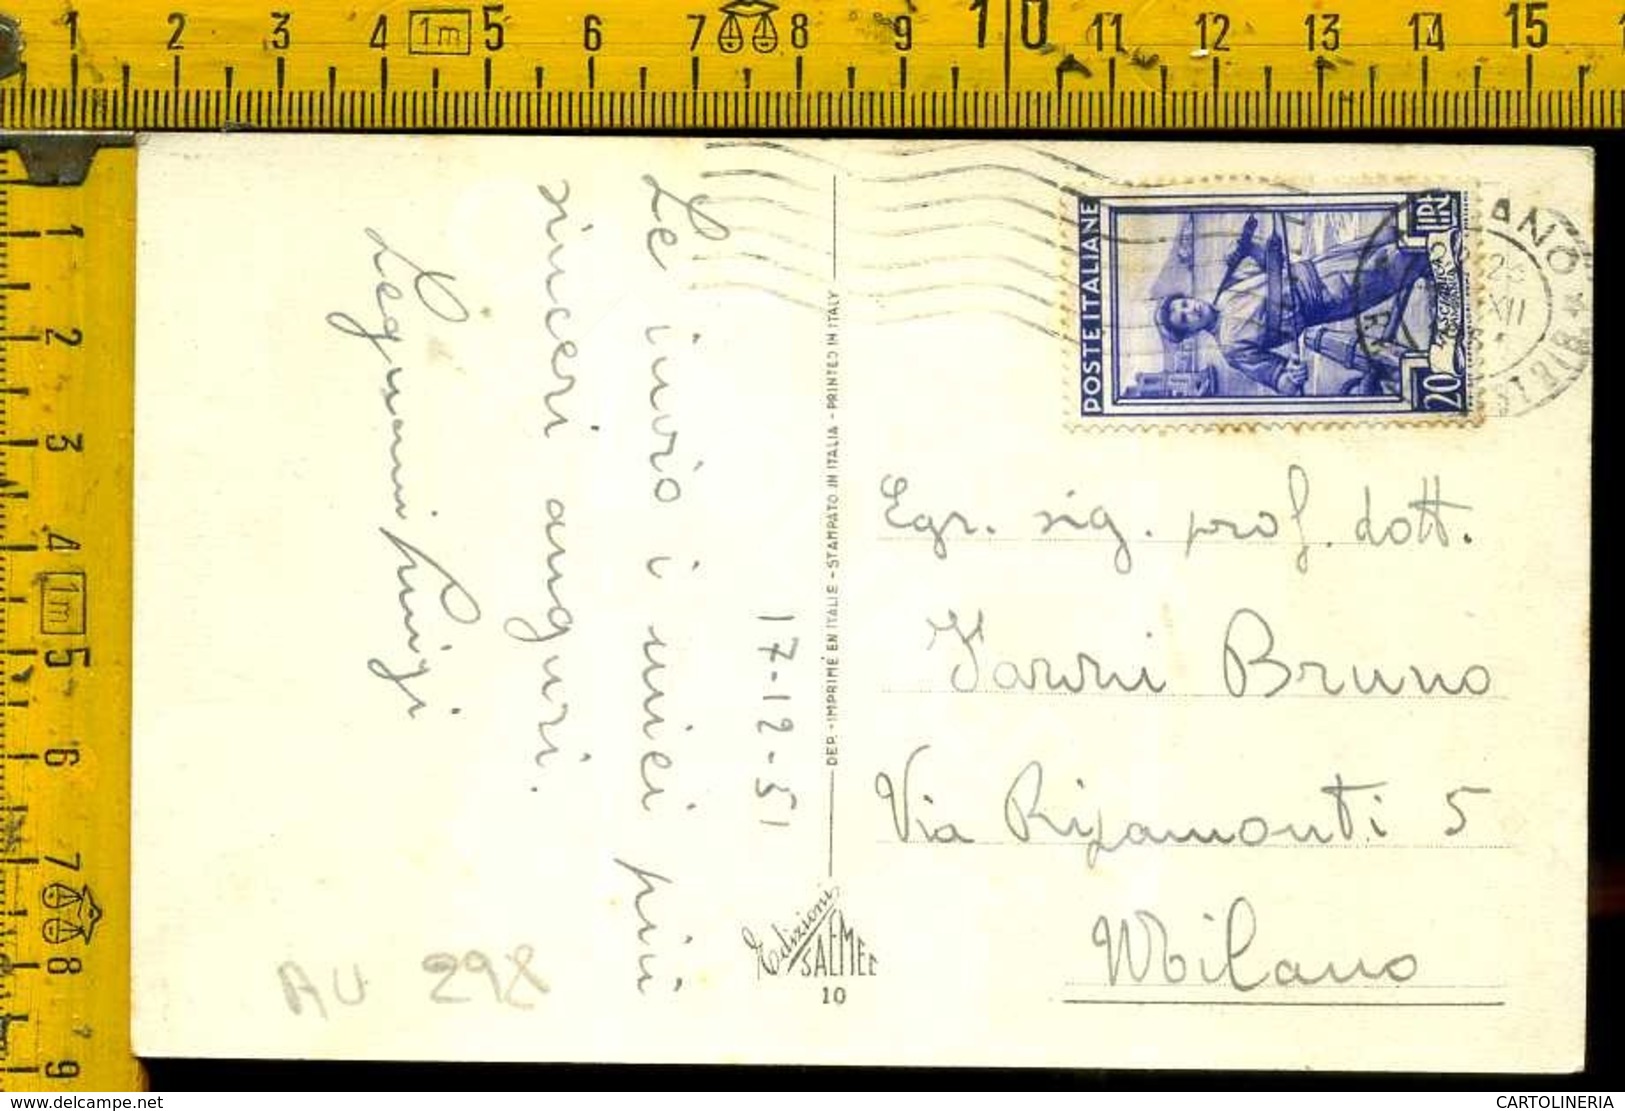 1 2 3 4 1m 5 6 7 8 9 10 11 12 13 14 15
1 2 3 4 1m 5 6 7 8 9
Le invio i miei più
sinceri auguri.
Legnani Luigi
17-12-51
DEP. - IMPRIMÉ EN ITALIE - STAMPATO IN ITALIA - PRINTED IN ITALY
Edizioni
SAEMEC
10
AU 298
POSTE ITALIANE
LIRE
20
ANO
XII
Egr. sig. prof. dott.
Varri Bruno
Via Ripamonti 5
Milano
www.delcampe.net
CARTOLINERIA